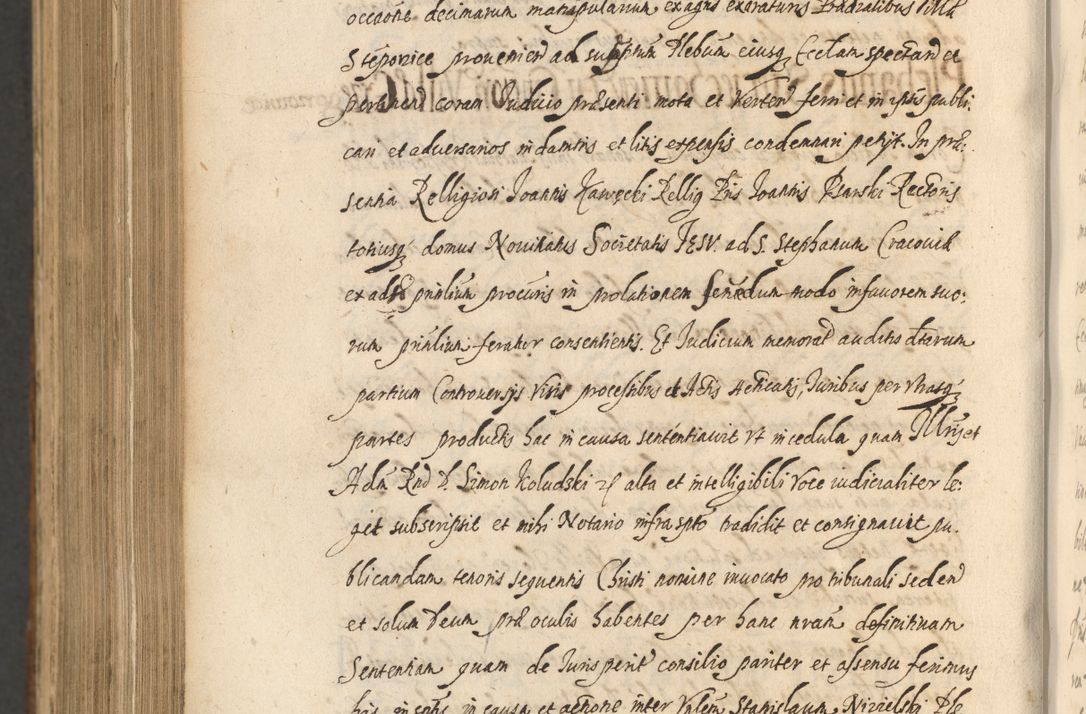 occaōne decimarum manipularium ex agris exoraturis Prædialibus Villæ
Steponice proueniend ad supptum Plebum eiusq3 Ecclam spectand et
pertinend coram Iudicio præsenti mota et Verten̄ ferri et in ipsis publi.
cari et aduersarios in damnis et litis expensis condemnari petijt. In præ:
sentia Relligiosi Joannis Zawęcki Rellig Pris Joannis Psarski Rectoris
totiusq3 domus Nouitiatus Societatis IESV. ad S. Stephanum Cracouiæ
ex aduerso pnlium procuris in prolationem senœdum modo in fauorem suo:
rum prinlium feratur consentientis. Et Iudicium memorat auditis dtarum
partium Controuersijs Visis processibus et Actis Acticatis, Iuribus per vtrasq3
partes productis hac in causa sententiauit vt in cedula quam Illris et
Adm Rnd D. Simon Koludski etc alta et intelligibili Voce iudicialiter le:
git subscripsit et mihi Notario infrascpto tradidit et consignauit pu.
blicandam tenoris sequentis Christi nomine inuocato pro tribunali seden̄
et solum Deum præ oculis habentes per hanc nram definitiuam
Sententiam quam de Iurisperit consilio pariter et assensu ferimus
his in sptis in causa et actione inter Vnlem Stanislaum Nizielski Ple